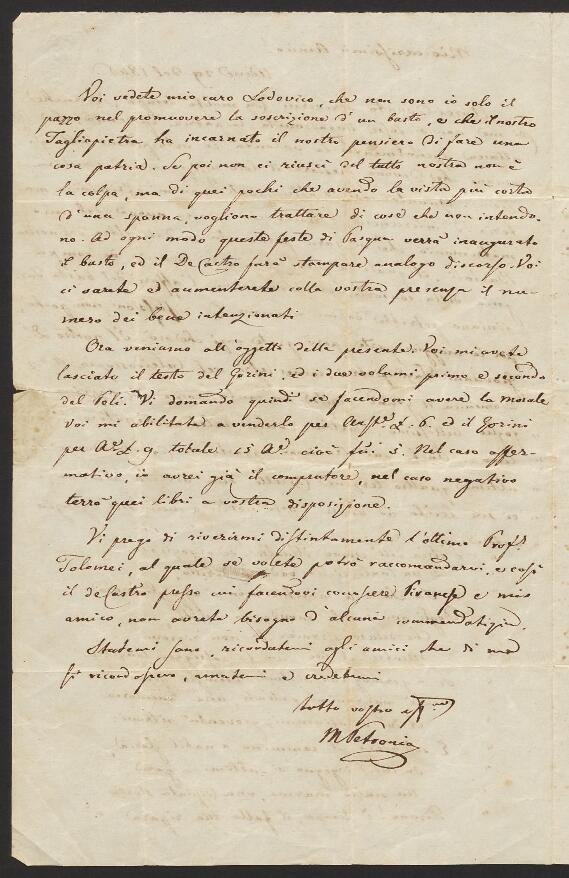 Voi vedete mio caro Lodovico, che non sono io solo il
pazzo nel promuovere la soscrizione d'un busto, e che il nostro
Tagliapietra ha incarnato il nostro pensiero di fare una
cosa patria. Se poi non ci riuscì del tutto nostra non è
la colpa, ma di quei pochi che avendo la vista più corta
d'una spanna, vogliono trattare di cose che non intendo-
no. Ad ogni modo queste feste di Pasqua verrà inaugurato
il busto, ed il De Castro farà stampare analogo discorso. Voi
ci sarete ed aumenterete colla vostra presenza il nu-
mero dei bene intenzionati
Ora veniamo all'oggetto della presente. Voi mi avete
lasciato il testo del Gorini, ed i due volumi primo e secondo
del Poli. Vi domando quindi se facendomi avere la Morale
voi mi abilitate a venderlo per Aust.e L. 6. ed il Gorini
per A.e L. 9 totale 15 A.e cioè fni. 5. Nel caso affer-
mativo, io avrei già il compratore, nel caso negativo
terrò quei libri a vostra disposizione.
Vi prego di riverirmi distintamente l'ottimo Prof.r
Tolomei, al quale se volete potrò raccomandarvi, e così
il de Castro presso cui facendovi conoscere Piranese e mio
amico, non avrete bisogno d'alcuna commendatizia.
Statemi sano, ricordatemi agli amici che di me
si ricordassero, amatemi e credetemi
tutto vostro
M Petronio